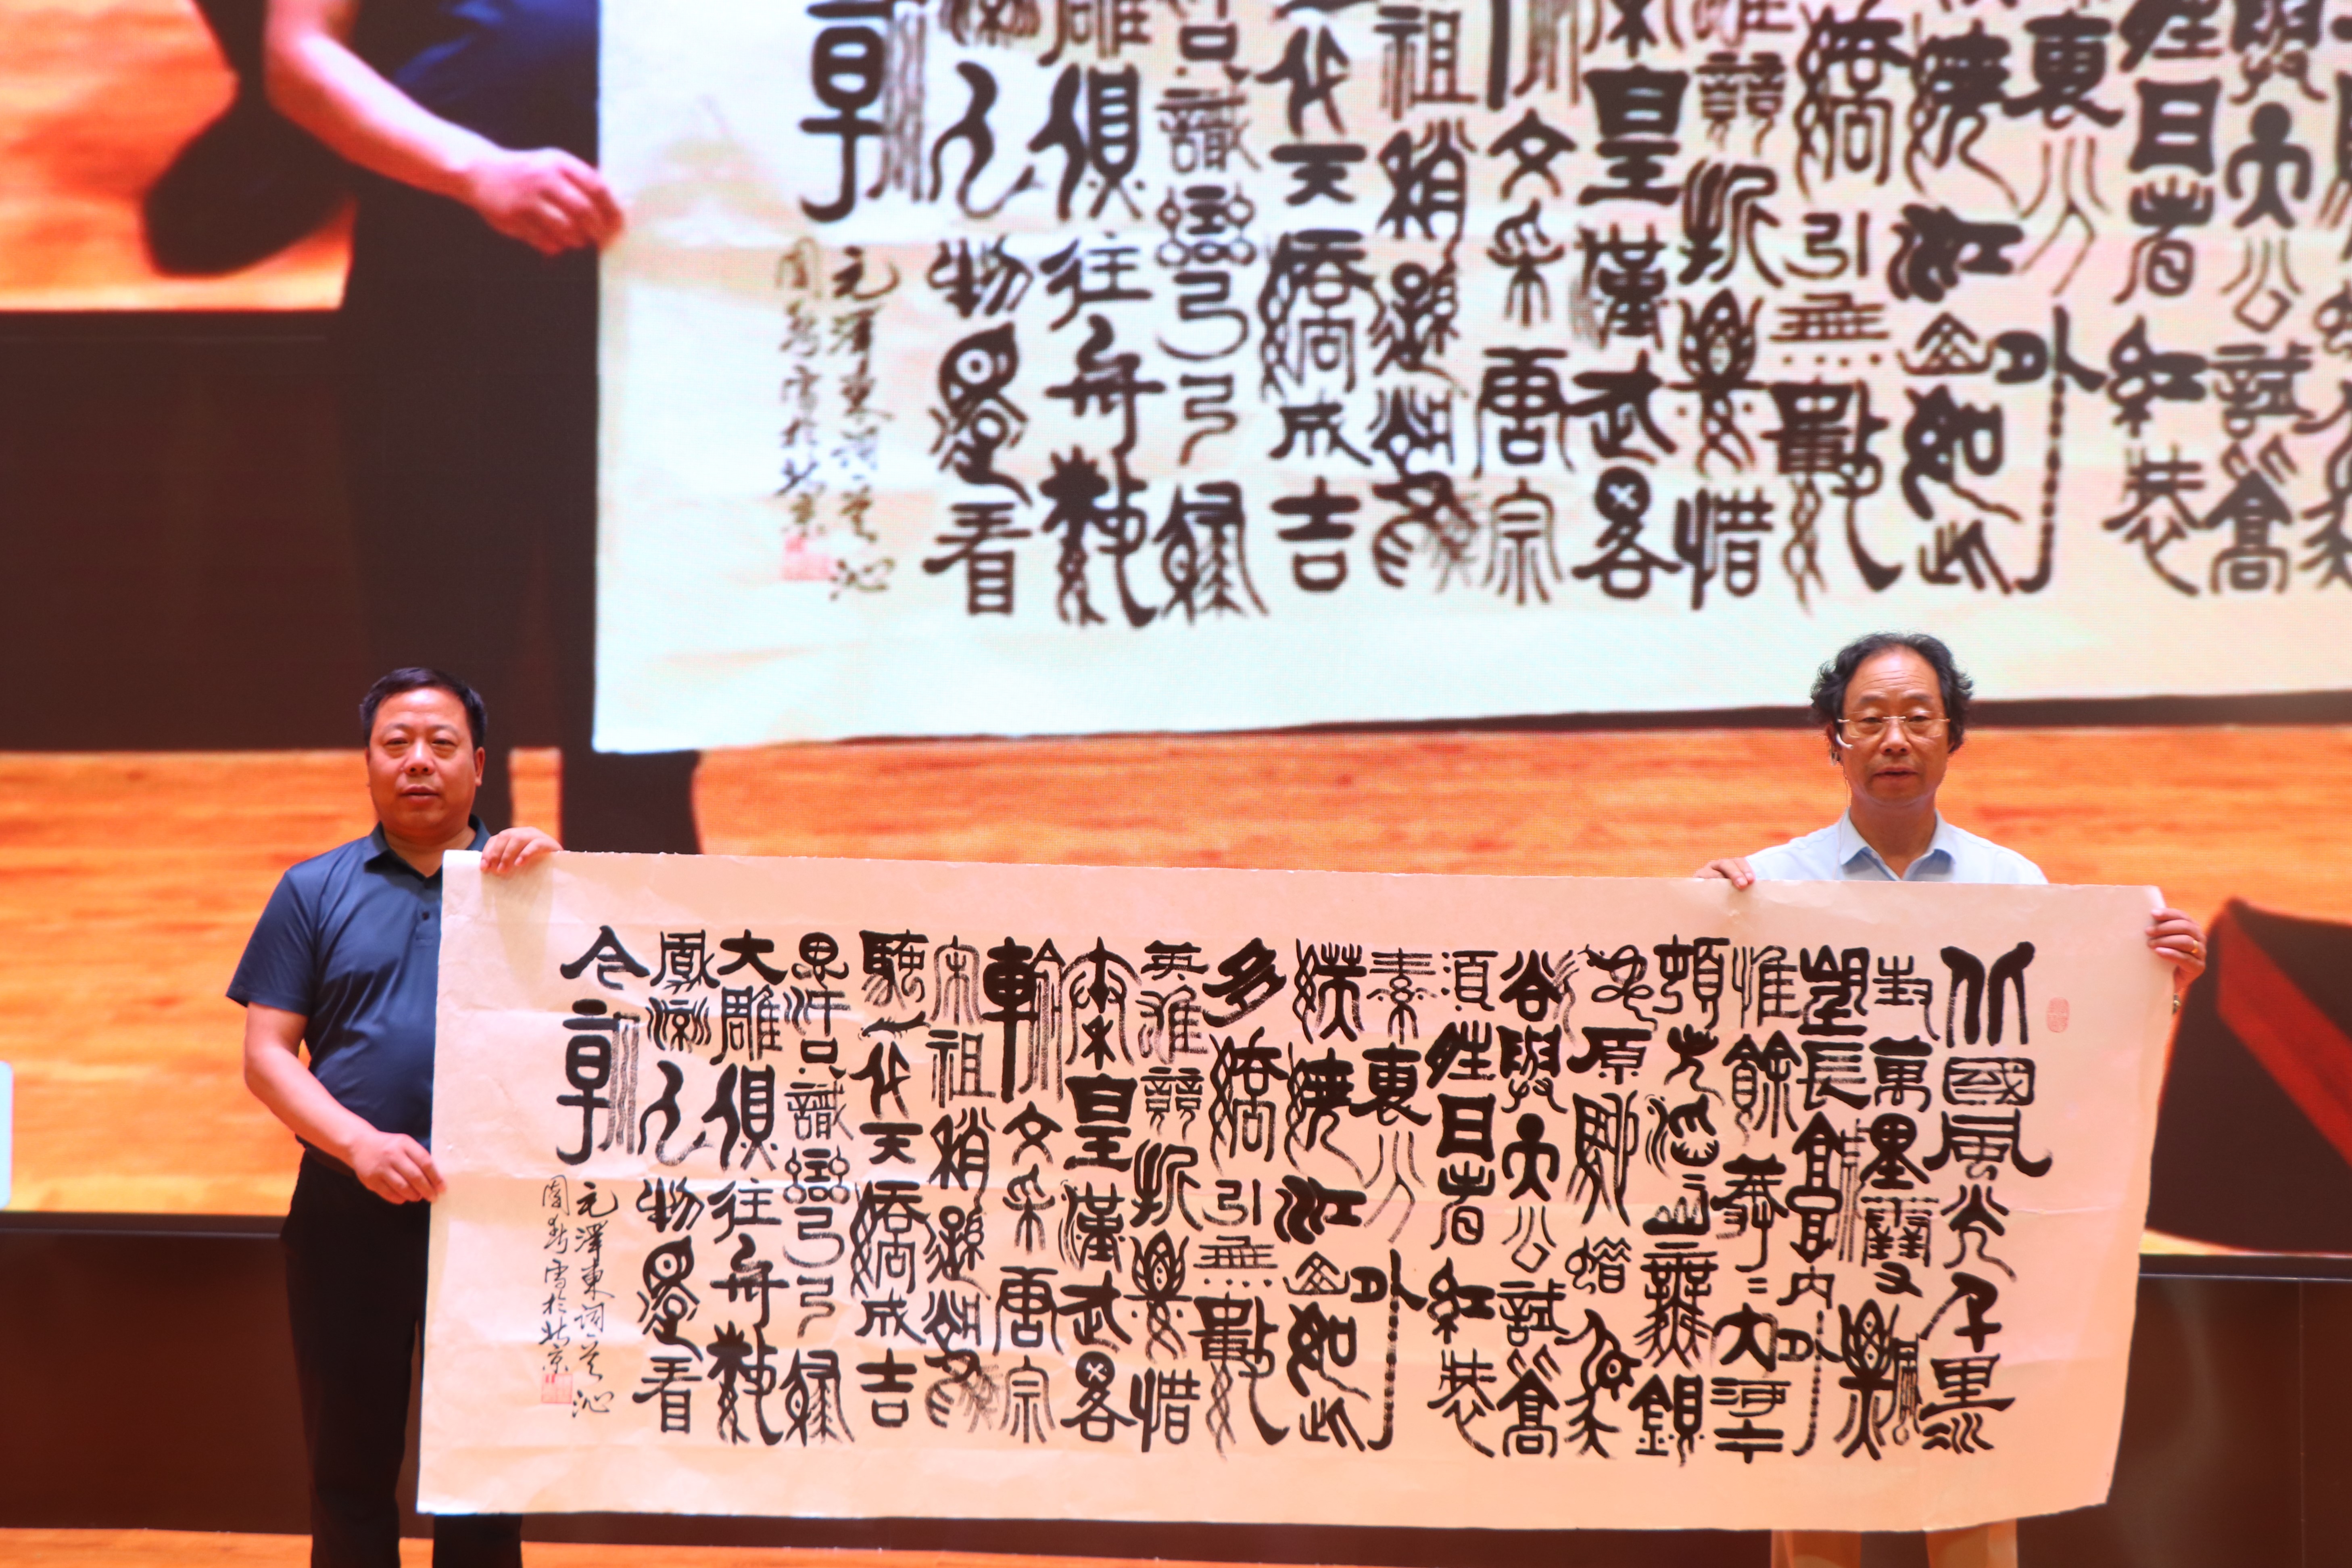 北國風光千里冰
封萬里雪飄
望長城內外
惟餘莽〻大河上下
頓失滔〻山舞銀
蛇原馳蠟象
欲與天公試高
須晴日看紅裝
素裹分外
妖嬈江山如此
多嬌引無數
英雄競折腰惜
秦皇漢武略
輸文采唐宗
宋祖稍遜風
騷一代天驕成吉
思汗只識彎弓射
大雕俱往矣數
風流人物還看
今朝
毛澤東詞一首沁
園春雪於北京